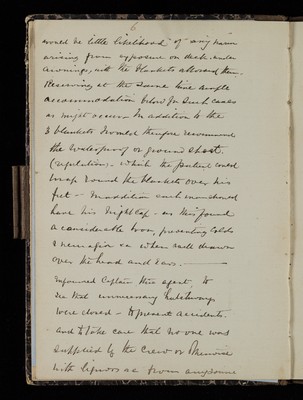 6
would be little likelihood of any harm
arising from exposure on deck under
awnings, with the blankets allowed them.
Reserving at the same time ample
accommodation below for such cases
as might occur. In addition to the
3 blankets I would therefore recommend
the waterproof or ground sheet
(regulation) - which the patient could
wrap round the blankets over his
feet - In addition each man should
have his Night Cap - as this found
a considerable boon, preventing colds
& when well drawn
over the head and ears. -
Informed Captain this again to
see that unnecessary
were closed - to prevent accidents.
and to take care that no one was
supplied by the Crew or
with liquors as from